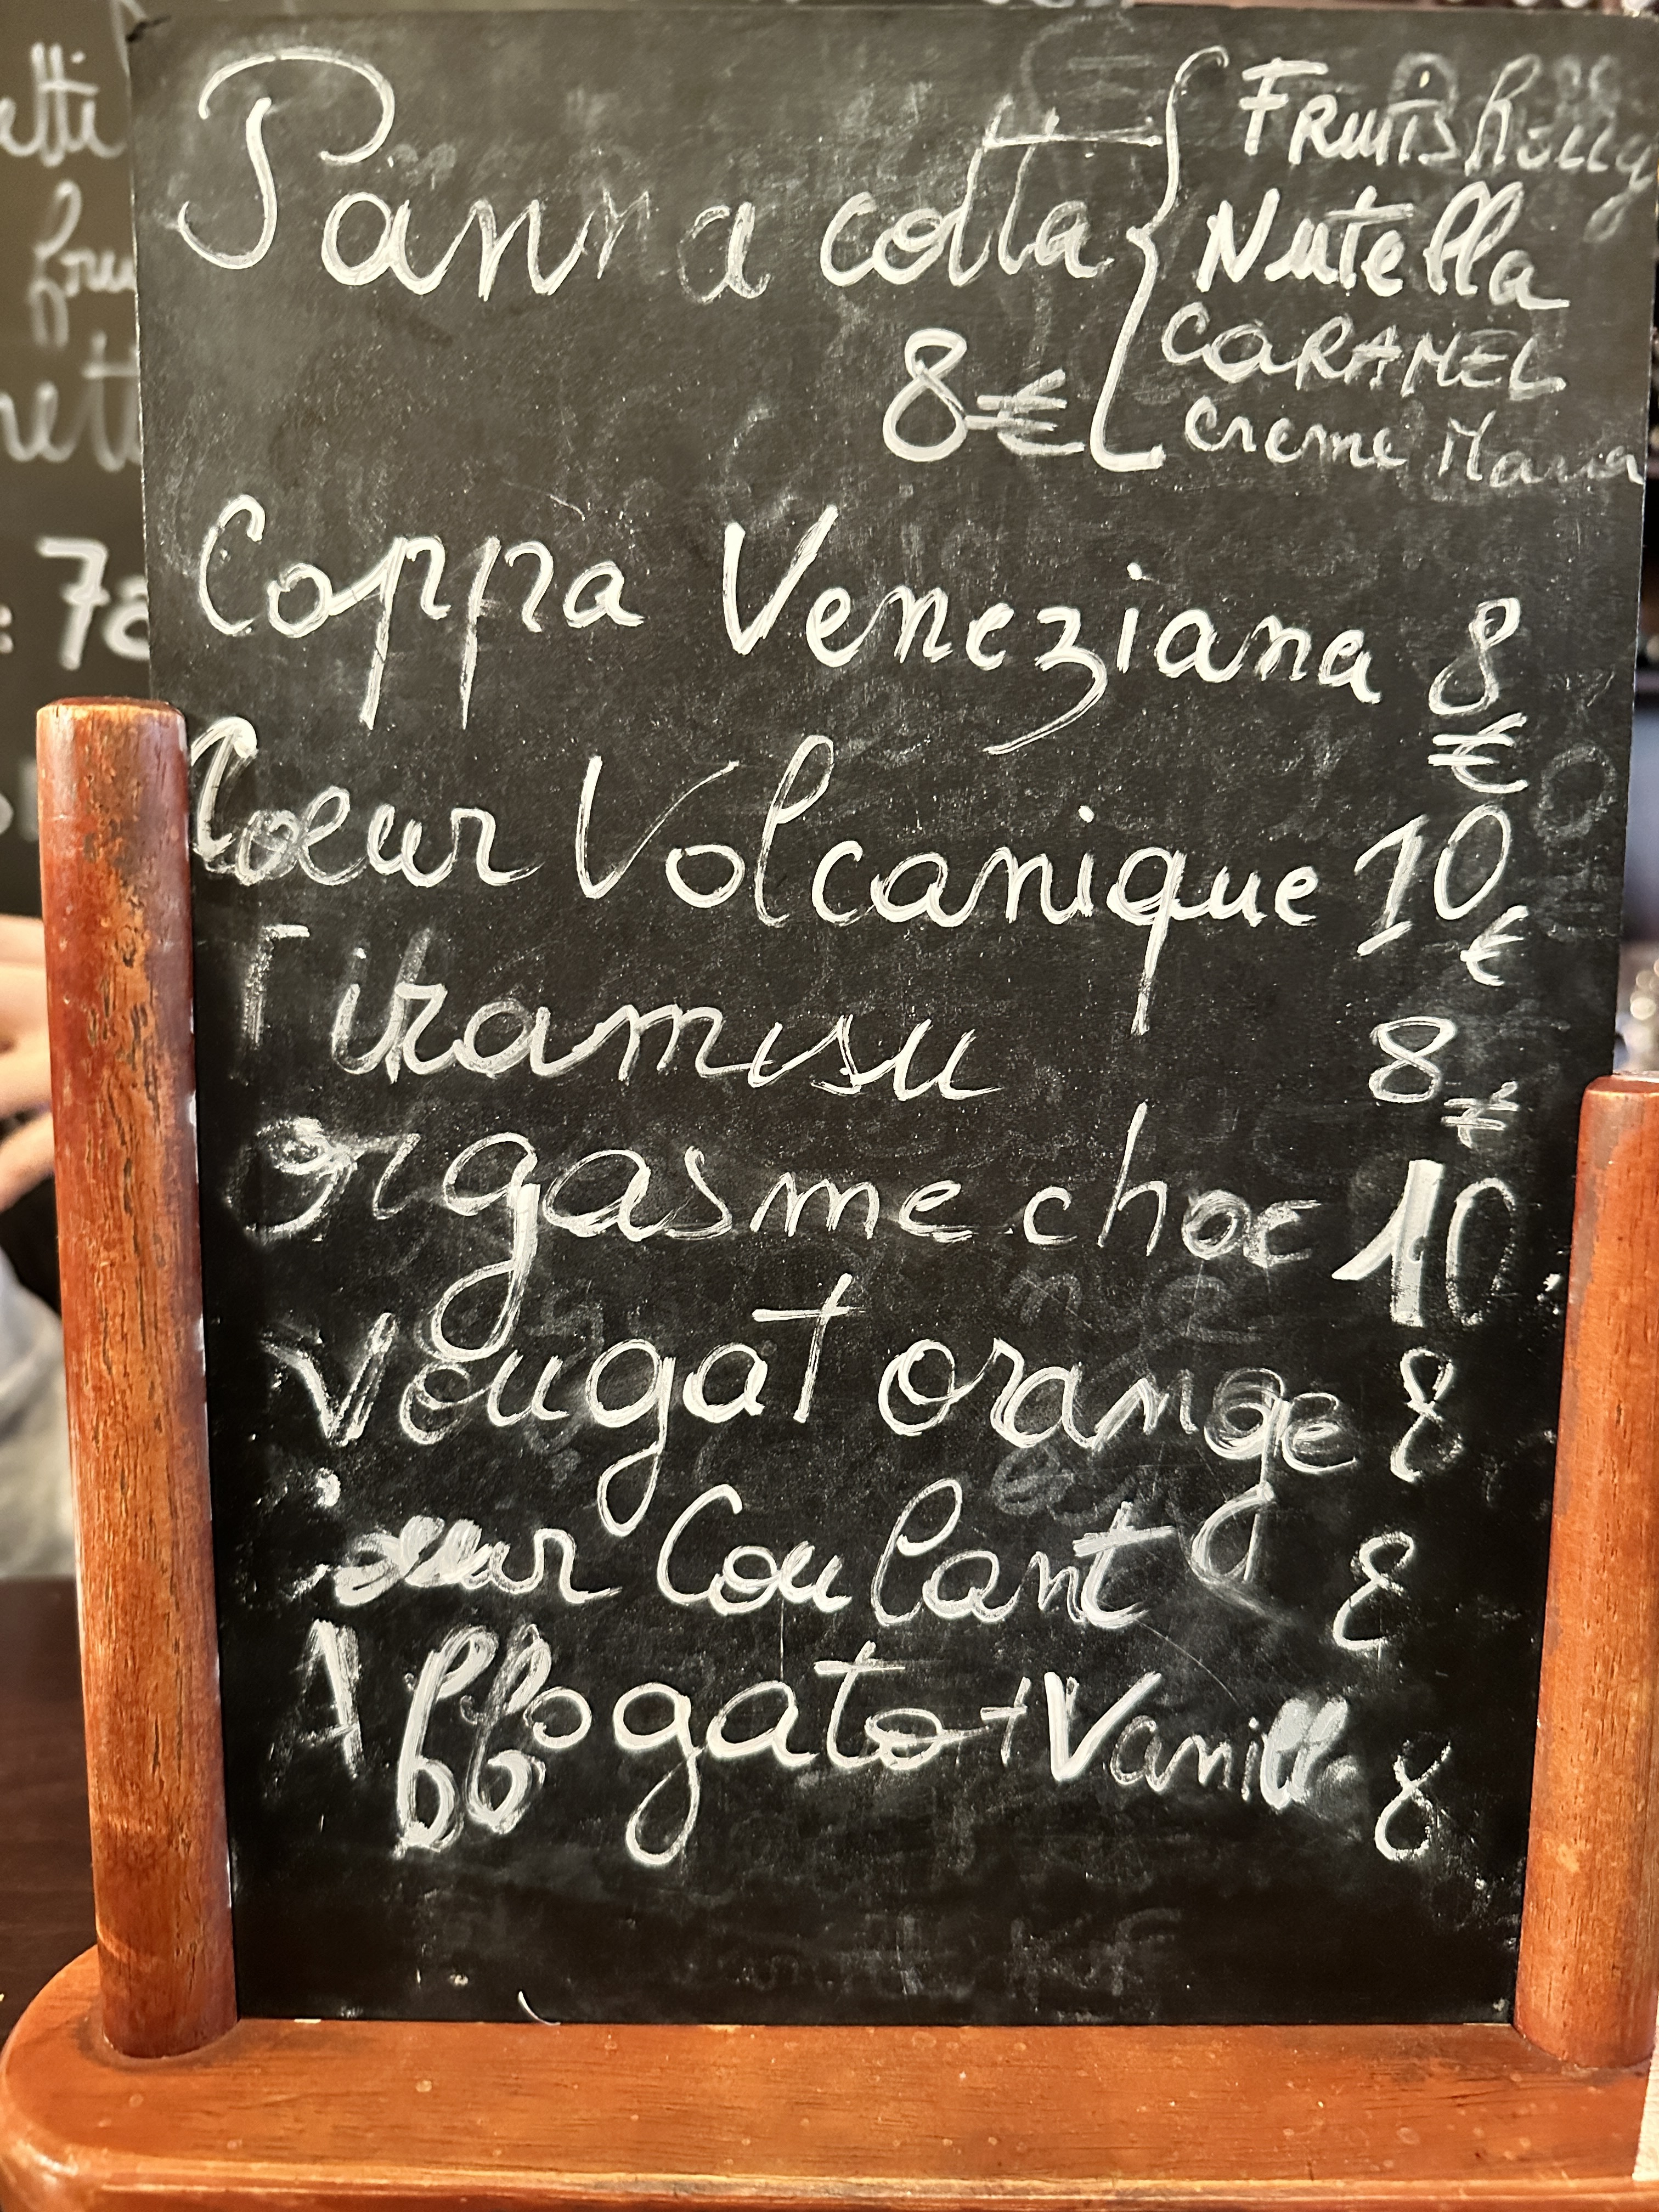 Panna cotta
Fruits
Nutella
CARAMEL
creme
8€
Coppa Veneziana 8
€
Coeur Volcanique 10
€
Tiramisu 8
€
orgasme choc 10
Nougat orange 8
Coulant 8
Affogato + Vanille 8
etti
7